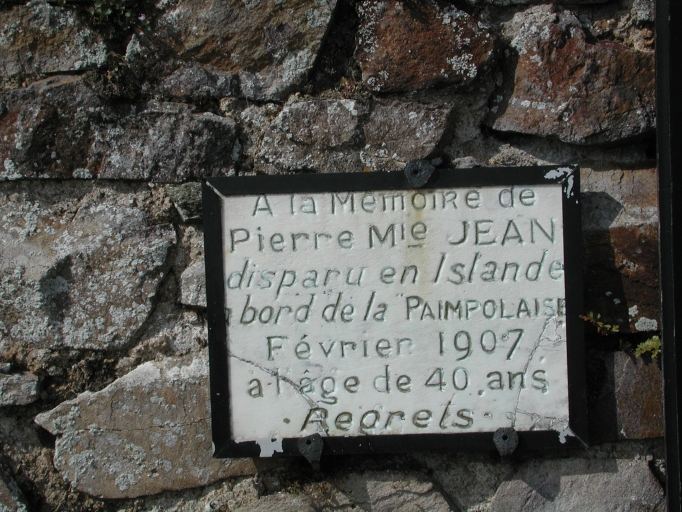 A la Mémoire de
Pierre Mie JEAN
disparu en Islande
bord de la PAIMPOLAISE
Février 1907
a l'âge de 40 ans
· Regrets ·